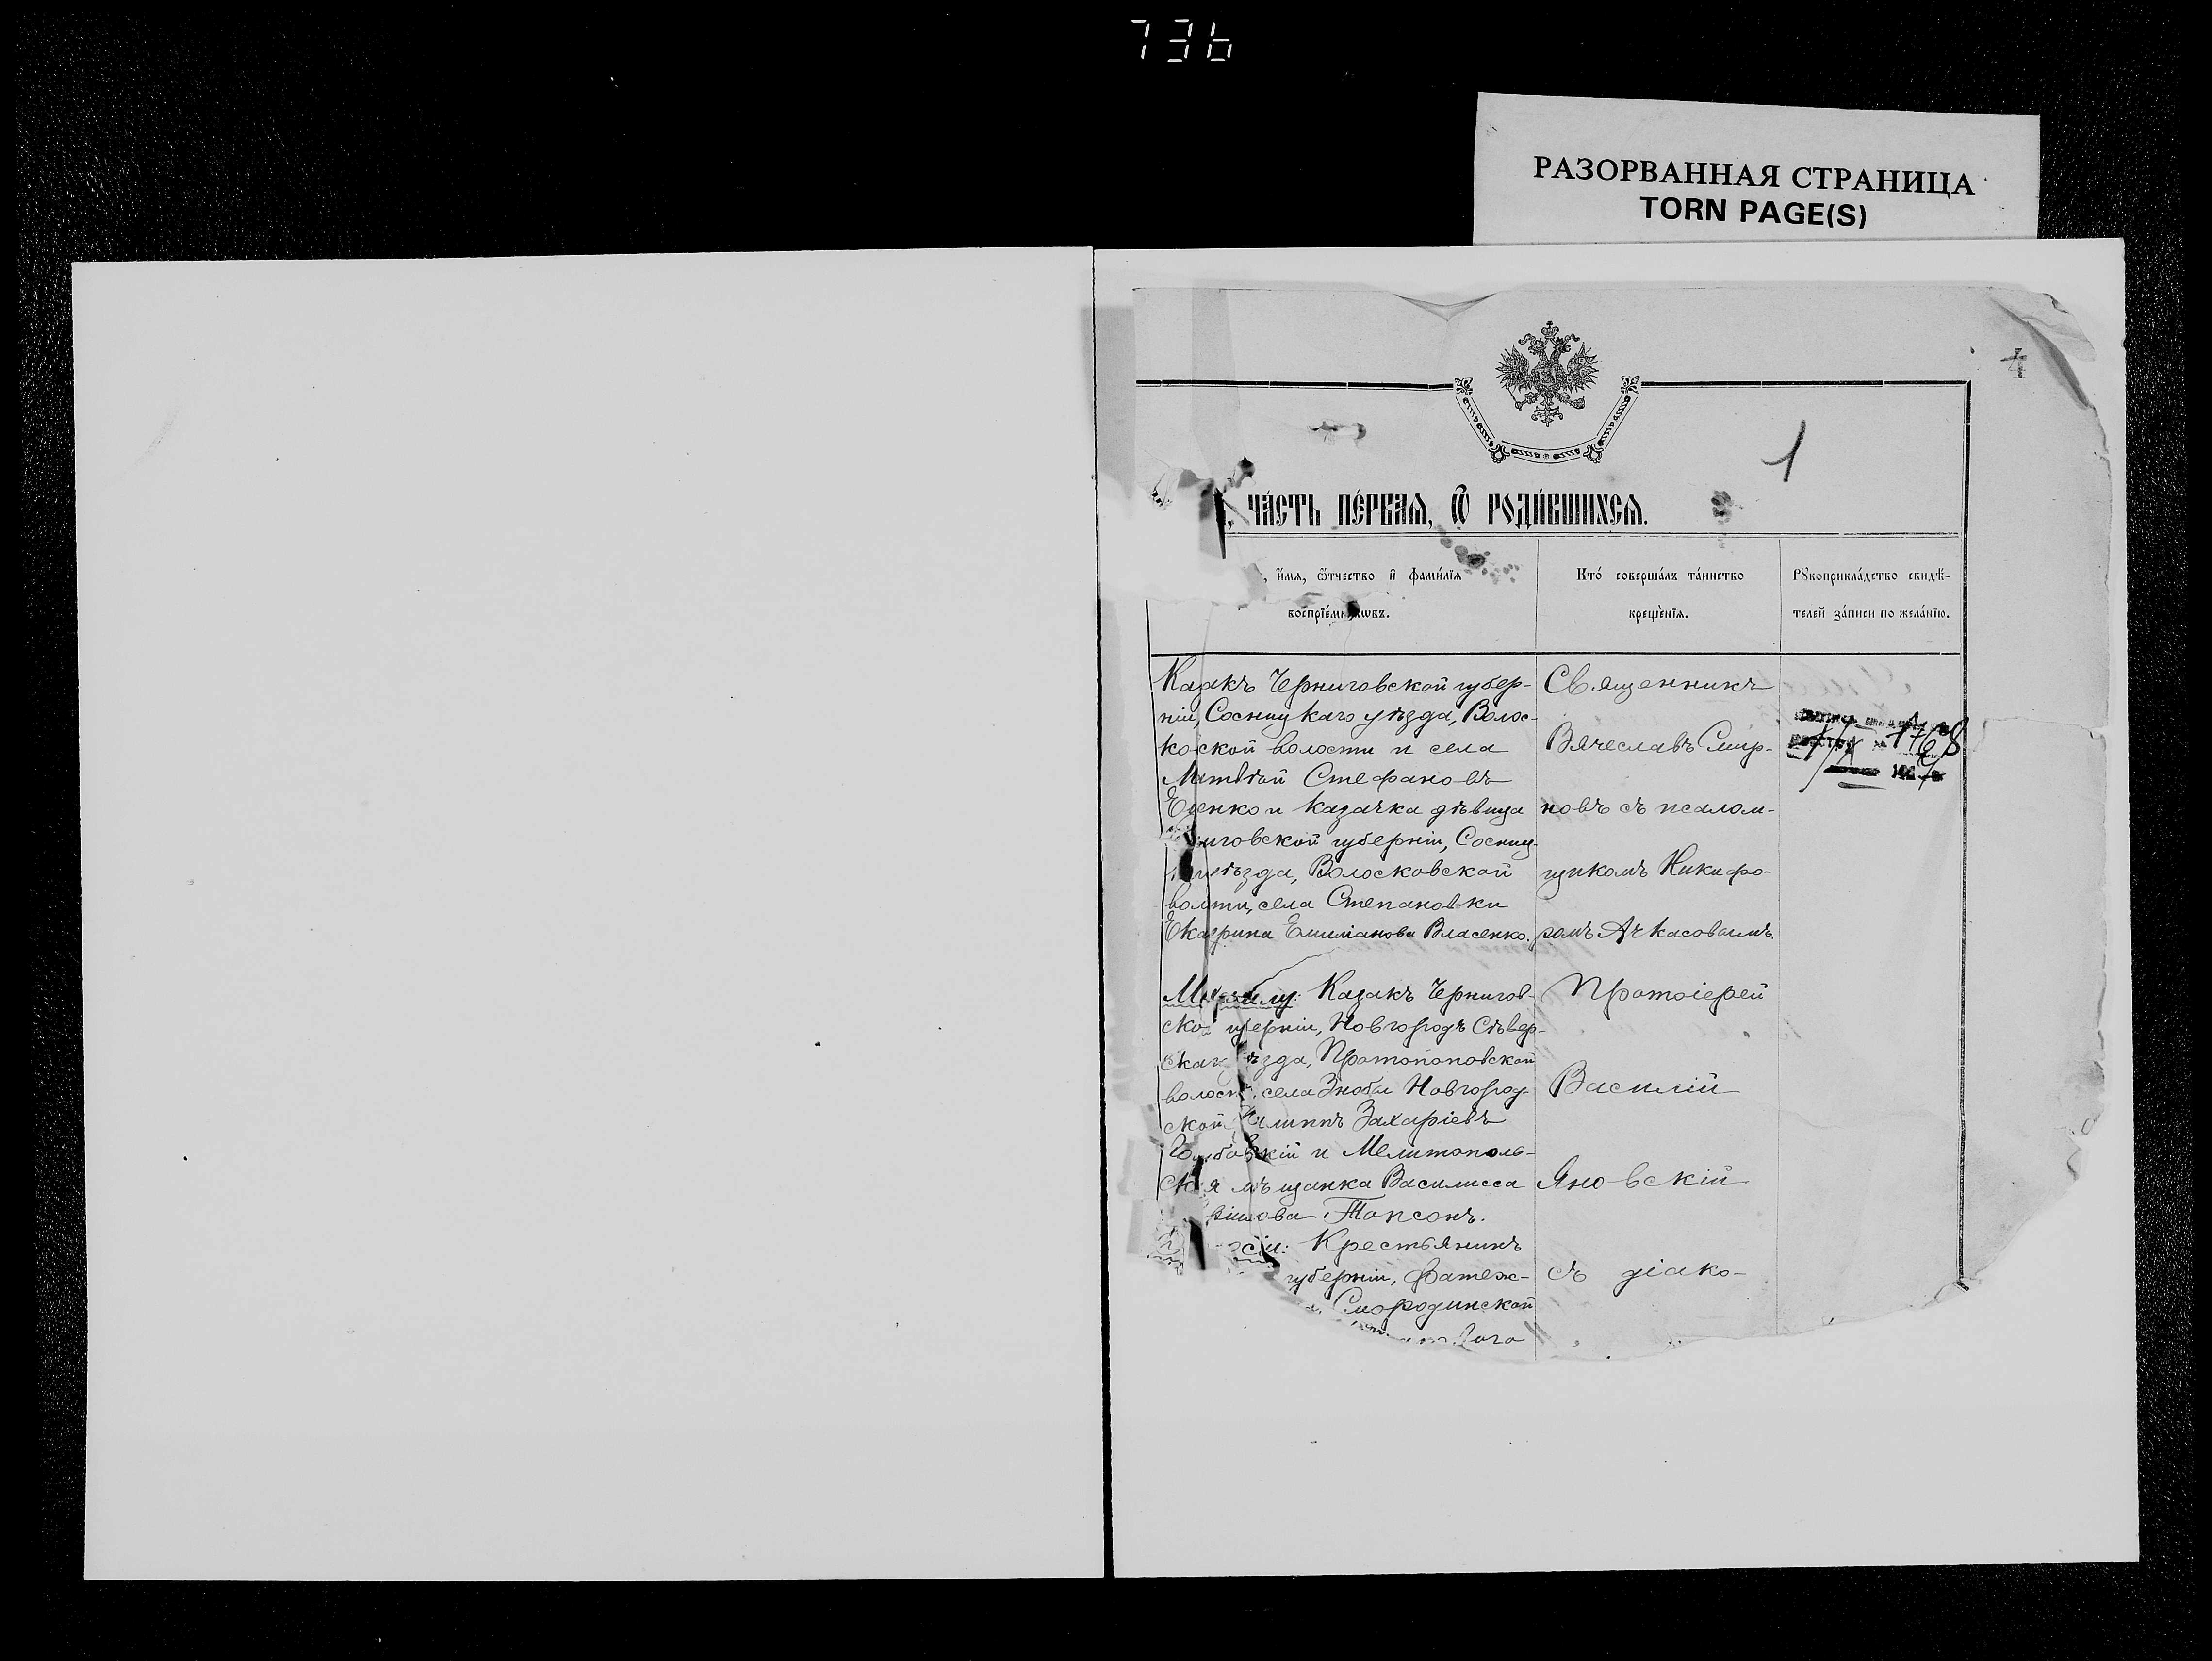 736
РАЗОРВАННАЯ СТРАНИЦА
TORN PAGE(S)
4
1
ЧА́СТЬ ПЕ́РВАЯ, Ѿ РОДИ́ВШИХСЯ.
, и́мя, ѻ҆́тчество и҆ фами́лїѧ
воспрїе́мниковъ.
Кто̀ соверша́лъ та́инство
креще́нїѧ.
Рꙋкоприкла́дство свидѣ-
телей за́писи по жела́нїю.
Казакъ Черниговской губер-
ніи, Сосницкаго уѣзда, Волос-
коской волости и села
Матвѣй Стефановъ
Еценко и казачка дѣвица
иговской губерніи, Сосниц-
уѣзда, Волосковской
волости, села Степановки
Екатерина Емиліанова Власенко.
Священникъ
Вячеславъ Смир-
новъ съ псалом-
щикомъ Никифо-
ромъ Ачкасовымъ.
1768
Казакъ Чернигов-
ской губерніи, Новгородъ Сѣвер-
скаго уѣзда, Протопоповской
волости, села Зноби Новгород-
ской Филиппъ Захаріевъ
и Мелитополь-
ская мѣщанка Василисса
Топсонъ.
Крестьянинъ
губерніи, Фатеж-
Смородинской
Протоіерей
Василій
Яновскій
съ діако-